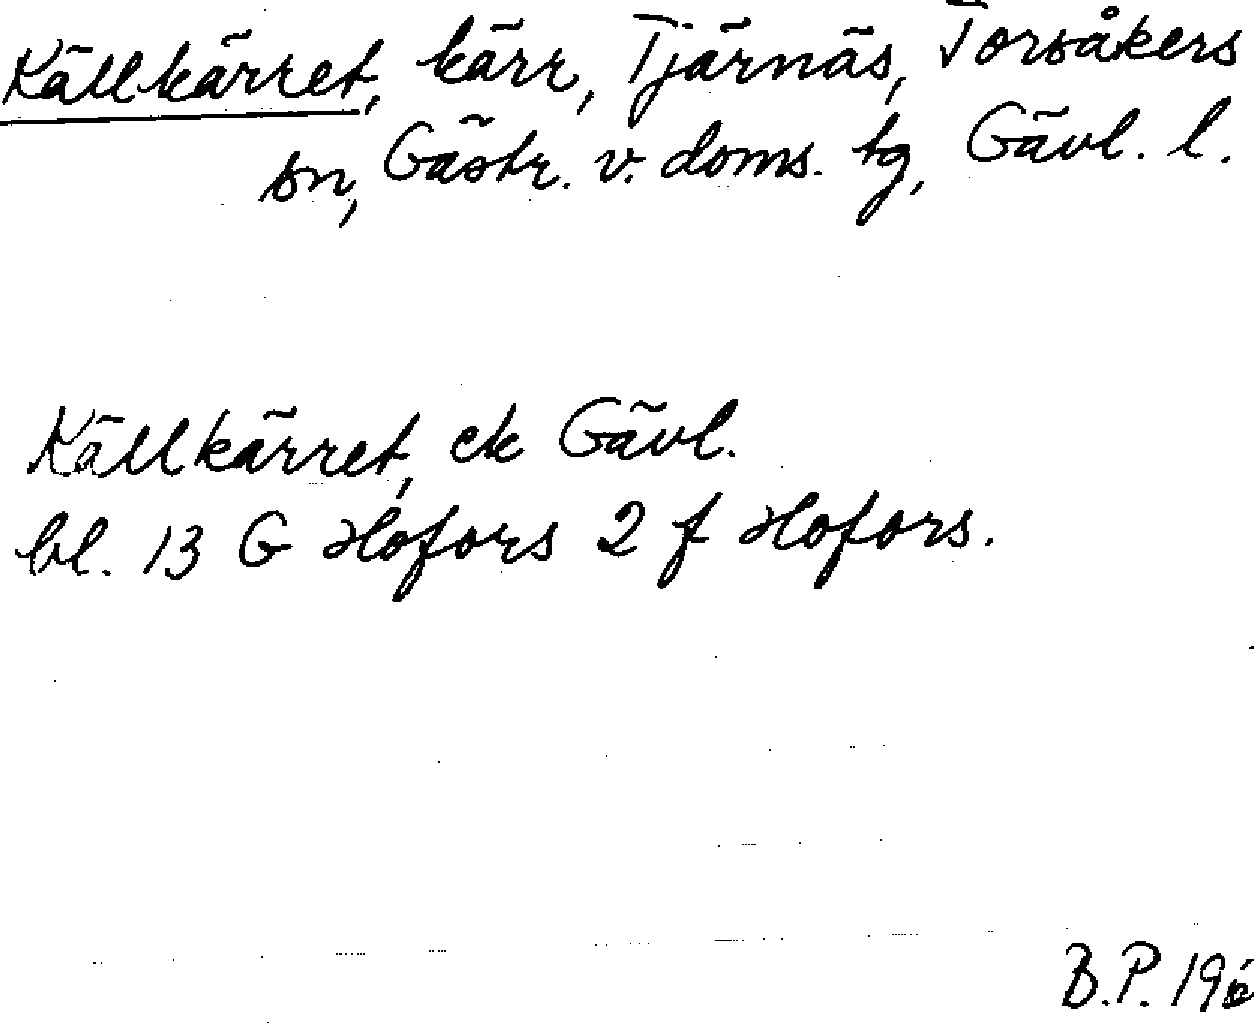 Källkärret, kärr, Tjärnäs, Torsåkers
sn, Gästr. v. doms. tg, Gävl. l.
Källkärret, ek Gävl.
bl. 13 G Hofors 2 f Hofors.
B.P. 196